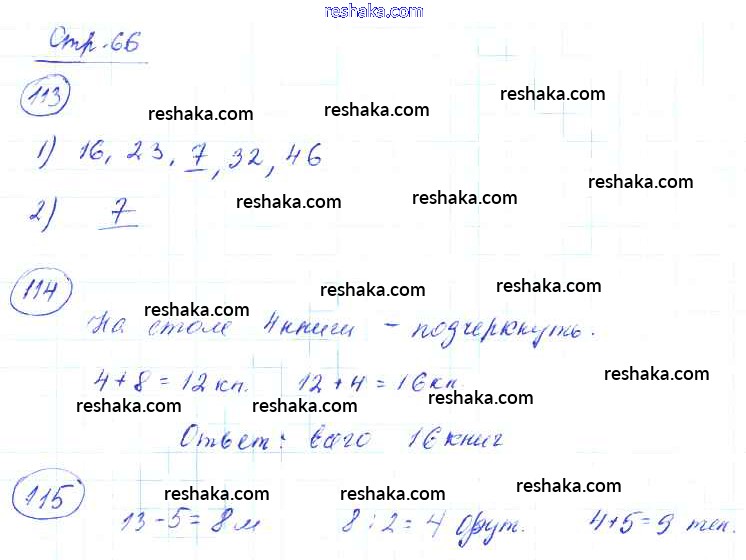 reshaka.com
Стр. 66
113
reshaka.com reshaka.com reshaka.com
1) 16, 23, 7, 32, 46
reshaka.com reshaka.com reshaka.com
2) 7
114
reshaka.com reshaka.com reshaka.com
На столе 4 книги - подчеркнуть.
4+8=12 кн. 12+4=16 кн.
reshaka.com reshaka.com reshaka.com reshaka.com
Ответ: всего 16 книг
115
reshaka.com reshaka.com reshaka.com
13-5=8 м 8:2=4 фут. 4+5=9 тен.